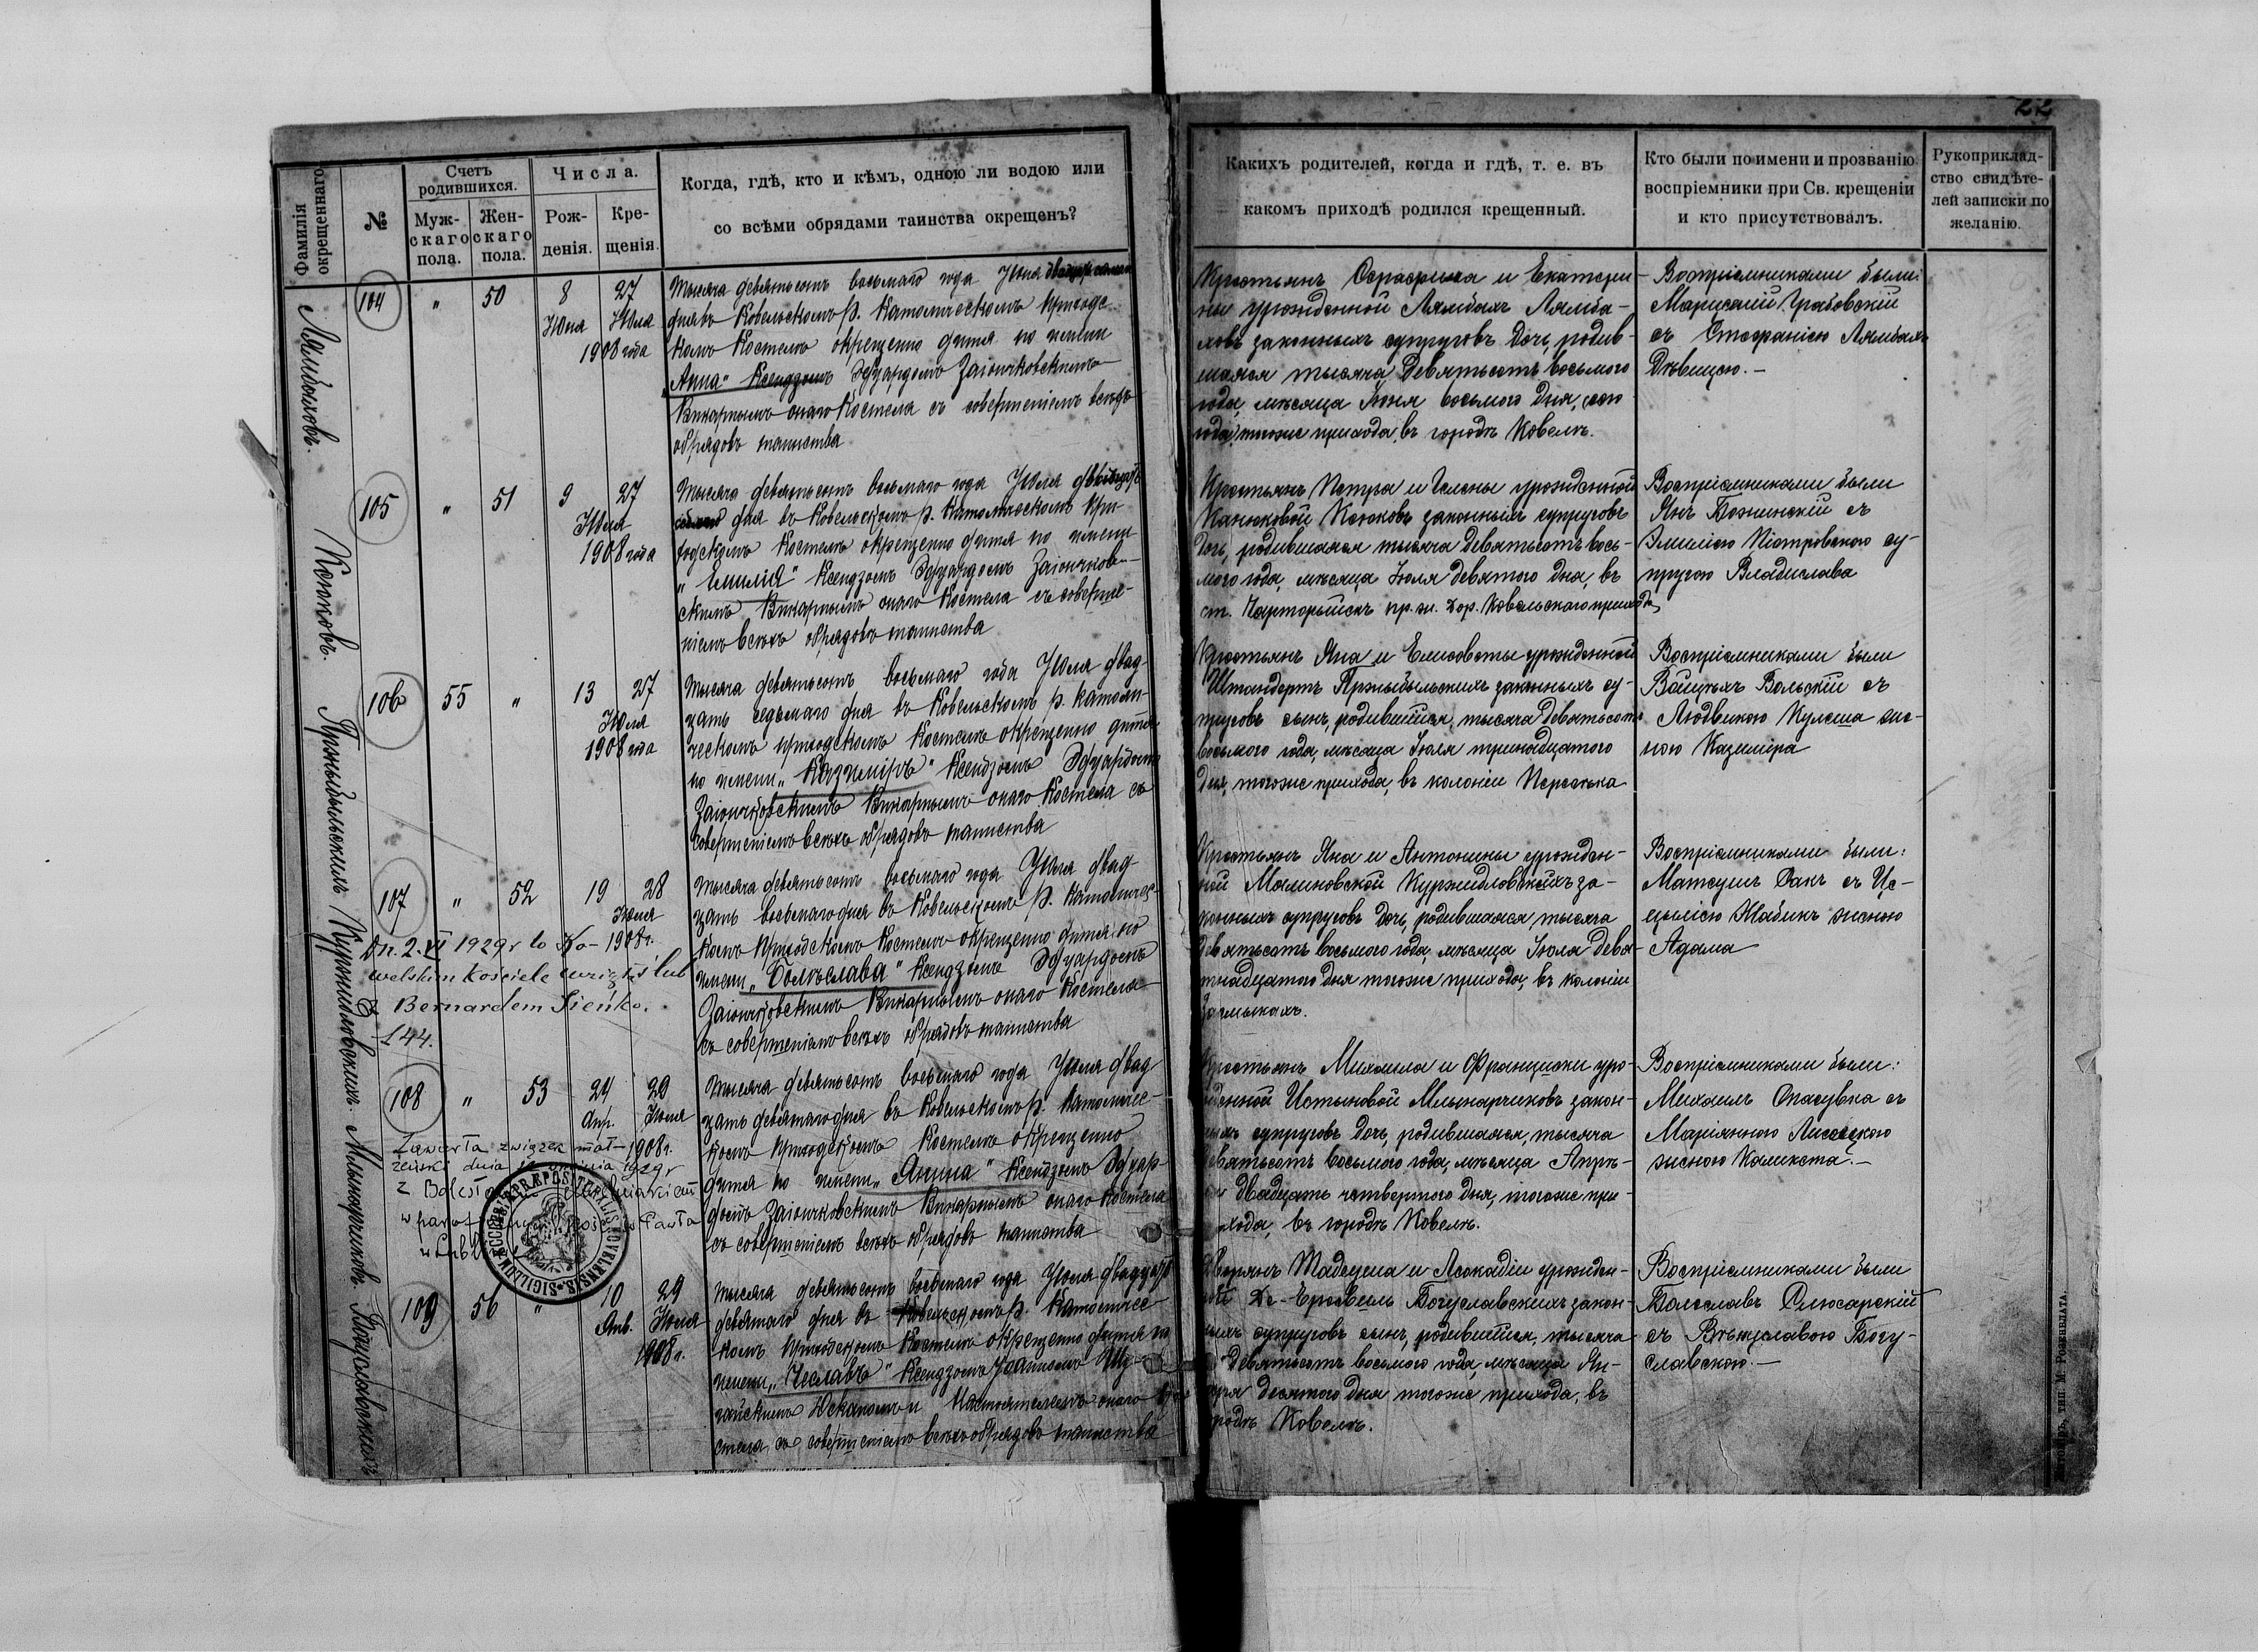 22
Фамилія окрещеннаго.
№
Счетъ родившихся.
Муж-
скаго
пола.
Жен-
скаго
пола.
Числа.
Рож-
денія.
Кре-
щенія.
Когда, гдѣ, кто и кѣмъ, одною ли водою или
со всѣми обрядами таинства окрещенъ?
Каких​ъ родителей, когда и гдѣ, т. е. въ
какомъ приходѣ родился крещенный.
Кто были по имени и прозванію
воспріемники при Св. крещеніи
и кто присутствовалъ.
Рукоприклад-
ство свидѣте-
лей записки по
желанію.
104 " 50 8 27
Юля
1908 года
Тысяча девятьсотъ восьмаго года Юля
дня въ Ковельскомъ р. Католическомъ приходс-
комъ Костелѣ окрещено дитя по имени
„Анна" Ксендзомъ Эдуардомъ Заіончковскимъ
Викарнымъ онаго Костела съ совершеніемъ всѣхъ
обрядовъ таинства
Крестьянъ и Екатери-
ны урожденной Лямбахъ Лямба-
ховъ законныхъ супруговъ дочь, родив-
шаяся тысяча девятьсотъ восьмого
года, мѣсяца Іюня восьмого дня, сего
года, тогоже прихода, въ городѣ Ковелѣ.
Воспріемниками были:
Грабовскій
съ Стефаніею Лямбахъ
Дѣвицею.-
105 " 51 9 27
Юля
1908 года
Ксюковъ.
Тысяча девятьсотъ восьмаго года Юля двадцать
седьмаго дня въ Ковельскомъ р. Католическомъ при-
ходскомъ Костелѣ окрещено дитя по имени
„Емилія" Ксендзомъ Эдуардомъ Заіончков-
скимъ Викарнымъ онаго Костела съ соверше-
ніемъ всѣхъ обрядовъ таинства
Крестьянъ Петра и Гелены урожденной
Канюковой Ксюковъ законныхъ супруговъ
дочь, родившаяся тысяча девятьсотъ вось-
мого года, мѣсяца Іюля девятого дня, въ
ст. Чарторыйскъ пр. ж. дор. Ковельскаго прихода
Воспріемниками были
Янъ съ
Эмиліею Піотровскою су-
пругою Владислава
106 55 " 13 27
Юля
1908 года
Тысяча девятьсотъ восьмаго года Юля двад-
цать седьмаго дня въ Ковельскомъ р. Католи-
ческомъ приходскомъ Костелѣ окрещено дитя
по имени „Казиміръ" Ксендзомъ Эдуардомъ
Заіончковскимъ Викарнымъ онаго Костела съ
совершеніемъ всѣхъ обрядовъ таинства
Крестьянъ Яна и Елисаветы урожденной
Штандертъ Пржыбыльскихъ законныхъ су-
пруговъ сынъ, родившійся, тысяча девятьсотъ
восьмого года, мѣсяца Іюля тринадцатого
дня, тогоже прихода, въ колоніи
Воспріемниками были
Войцѣхъ Вольскій съ
Людвикою Кулеша же-
ною Казиміра
107 " 52 19 28
Юля
1908 г.
Dn. 2. VI 1929 r w Ko-
welskim kościele wziął ślub
z Bernardem Sieńko.
144.
Тысяча девятьсотъ восьмаго года Юля двад-
цать восьмаго дня въ Ковельскомъ р. Католичес-
комъ приходскомъ Костелѣ окрещено дитя по
имени „Болеслава" Ксендзомъ Эдуардомъ
Заіончковскимъ Викарнымъ онаго Костела
съ совершеніемъ всѣхъ обрядовъ таинства
Крестьянъ Яна и Антонины урожден-
ной Малиновской за-
конныхъ супруговъ дочь, родившаяся тысяча
девятьсотъ восьмого года, мѣсяца Іюля девя-
тнадцатого дня тогоже прихода, въ колоніи
Засмыкахъ.
Воспріемниками были:
Матеушъ Сакъ съ Це-
цыліею женою
Адама
108 " 53 24 29
Апр. Юля
1908 г.
Zawarła związek mał-
żeński dnia 1929 r
z
w
Тысяча девятьсотъ восьмаго года Юля двад
цать девятаго дня въ Ковельскомъ р. Католичес-
комъ приходскомъ Костелѣ окрещено
дитя по имени „Янина" Ксендзомъ Эдуар-
домъ Заіончковскимъ Викарнымъ онаго Костела
съ совершеніемъ всѣхъ обрядовъ таинства
Крестьянъ Михаила и Францишки уро-
жденной Млынарчиковъ закон-
ныхъ супруговъ дочь, родившаяся, тысяча
девятьсотъ восьмого года, мѣсяца Апрѣ-
ля двадцать четвертого дня, тогоже при-
хода, въ городѣ Ковелѣ.
Воспріемниками были:
Михаилъ съ
Маріанною
женою Каликста.-
109 56 " 10 29
Янв. Юля
1908 г.
Тысяча девятьсотъ восьмаго года Юля двадцать
девятаго дня въ Ковельскомъ р. Католичес
комъ приходскомъ Костелѣ окрещено дитя по
имени „Чеславъ" Ксендзомъ
Деканомъ и Настоятелемъ онаго Ко-
стела съ совершеніемъ всѣхъ обрядовъ таинства
Дворянъ Тадеуша и Леокадіи урожден-
ной Богуславскихъ закон-
ныхъ супруговъ сынъ, родившійся, тысяча
девятьсотъ восьмого года, мѣсяца Ян-
варя десятого дня тогоже прихода, въ
городѣ Ковелѣ.
Воспріемниками были
Болеславъ Слюсарскій
съ Вѣнцеславою Богу-
славскою.-
Лямбаховъ.
Пржыбыльскихъ
Млынарчиковъ.
Богуславскихъ
тип. М. Розенблата.